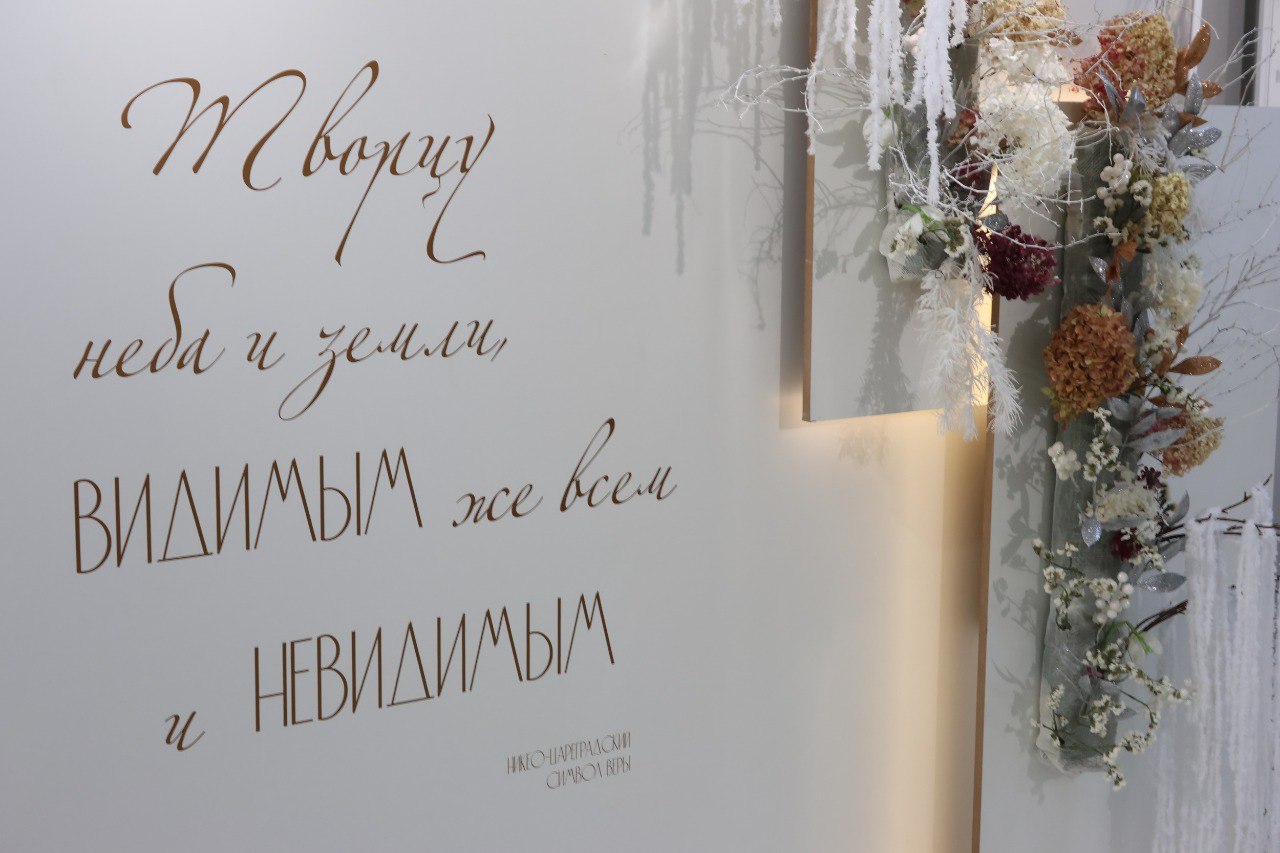 Творцу
неба и земли,
ВИДИМЫМ же всем
и НЕВИДИМЫМ
НИКЕО-ЦАРЕГРАДСКИЙ
СИМВОЛ ВЕРЫ